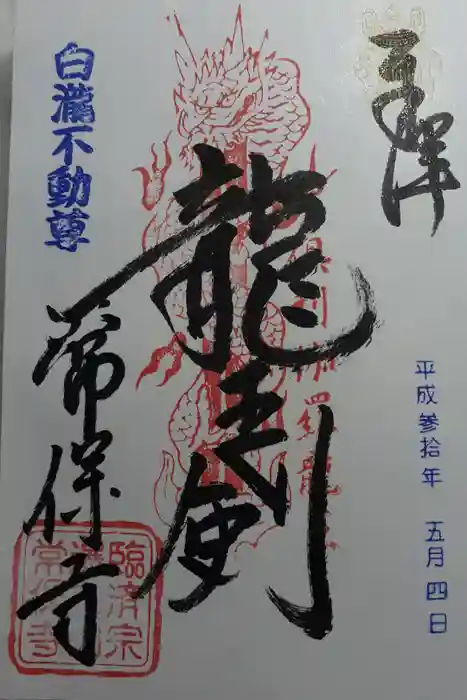 奉拝
平成参拾年 五月四日
龍王剣
白瀧不動尊
常保寺
臨済宗
常保寺